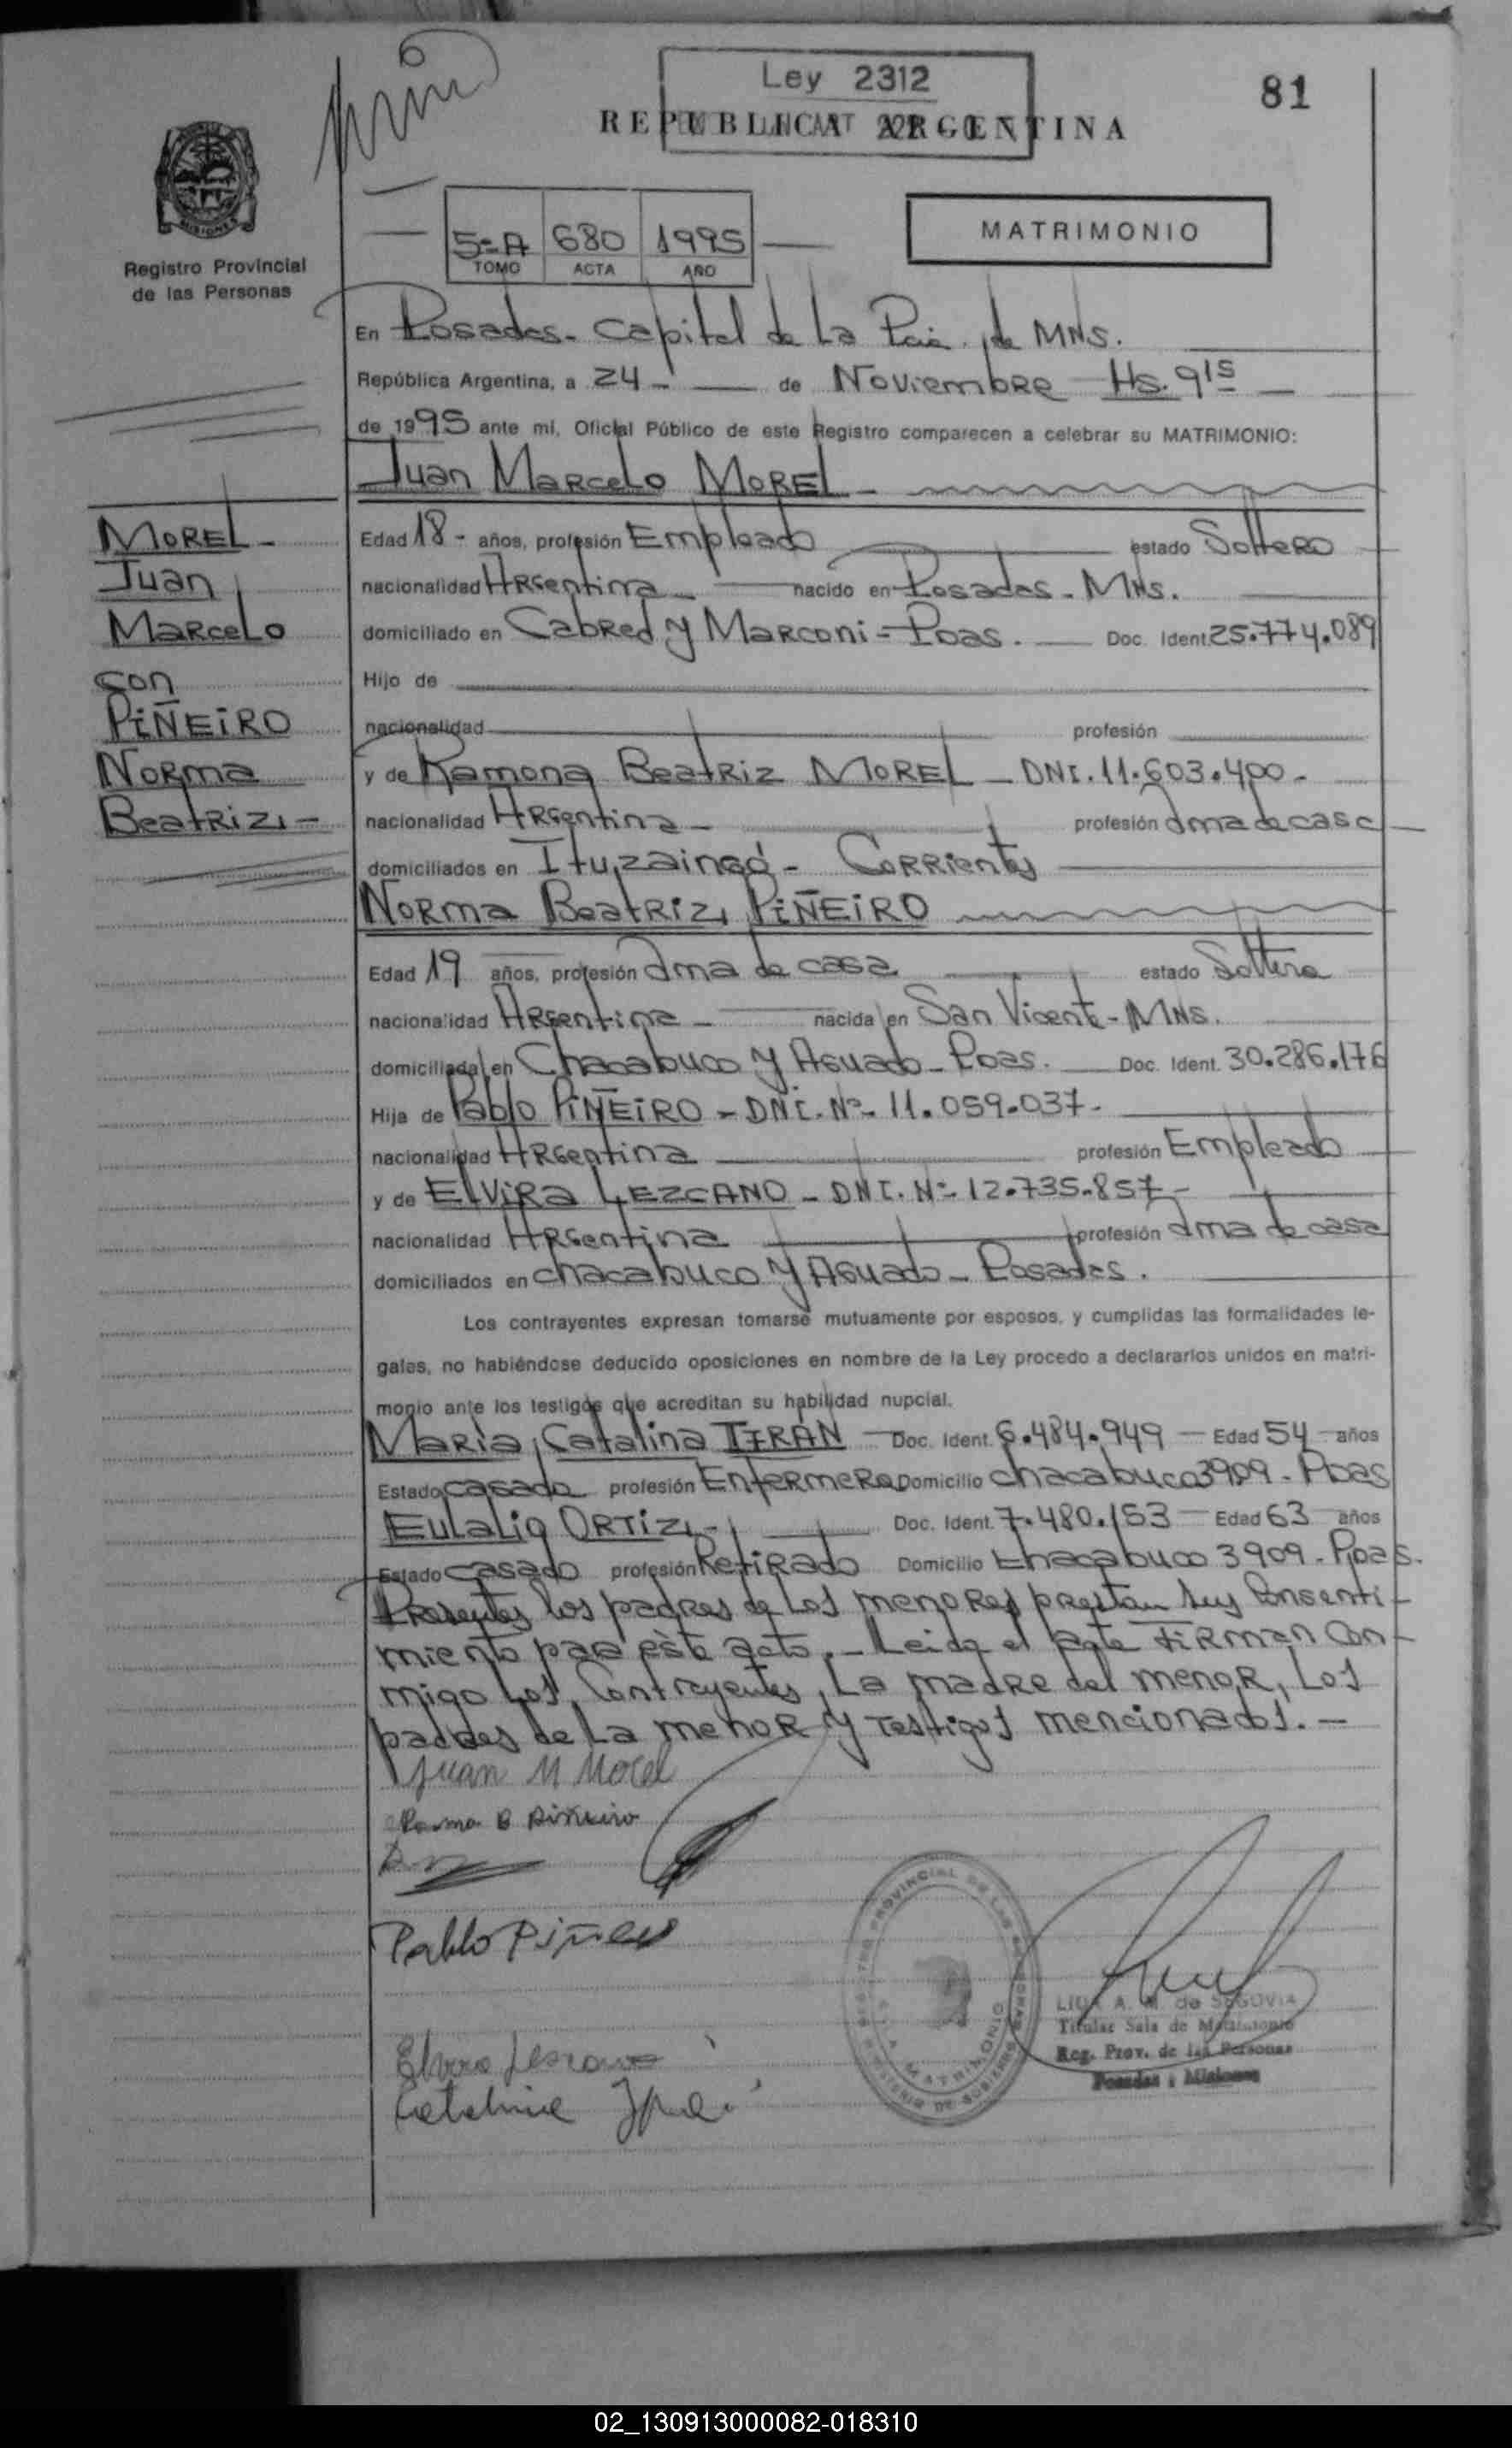 Ley 2312
81
REPUBLICA ARGENTINA
MISIONES
Registro Provincial
de las Personas
5=A 680 1995
TOMO ACTA AÑO
MATRIMONIO
En Posadas- Capital de La Pcia. de MNS.
República Argentina, a 24 - de Noviembre Hs. 915
de 1995 ante mí, Oficial Público de este Registro comparecen a celebrar su MATRIMONIO:
Juan Marcelo MOREL -
MOREL -
Juan
Marcelo
con
PIÑEIRO
Norma
Beatriz -
Edad 18 - años, profesión Empleado estado Soltero
nacionalidad Argentina - nacido en Posadas - MNS.
domiciliado en Cabred y Marconi - Poas. Doc. Ident. 25.774.089
Hijo de
nacionalidad profesión
y de Ramona Beatriz MOREL - DNI. 11.603.400 -
nacionalidad Argentina - profesión Ama de casa
domiciliados en Ituzaingó - Corrientes
Norma Beatriz PIÑEIRO
Edad 19 años, profesión Ama de casa estado Soltera
nacionalidad Argentina - nacida en San Vicente - MNS.
domiciliada en Chacabuco y Aguado - Poas. Doc. Ident. 30.286.176
Hija de Pablo PIÑEIRO - DNI. Nº 11.059.037 -
nacionalidad Argentina profesión Empleado
y de Elvira LEZCANO - DNI. Nº 12.735.857 -
nacionalidad Argentina profesión Ama de casa
domiciliados en Chacabuco y Aguado - Posadas.
Los contrayentes expresan tomarse mutuamente por esposos, y cumplidas las formalidades le-
gales, no habiéndose deducido oposiciones en nombre de la Ley procedo a declararlos unidos en matri-
monio ante los testigos que acreditan su habilidad nupcial.
María Catalina Doc. Ident. 6.484.949 Edad 54 años
Estado casada profesión Enfermera Domicilio Chacabuco 3909 - Poas
Eulalio ORTIZ - Doc. Ident. 7.480.153 Edad 63 años
Estado casado profesión Retirado Domicilio Chacabuco 3909 - Poas.
Presentes los padres de Los menores prestan sus Consenti-
miento para éste acto. - Leida el acta firman Con-
migo Los Contrayentes, La madre del menor, Los
padres de La menor y Testigos mencionados. -
Juan M Morel
Norma B Piñeiro
Pablo Piñeiro
Elvira Lescano
Catalina
REGISTRO PROVINCIAL DE LAS PERSONAS
SALA MATRIMONIO
MINISTERIO DE GOBIERNO
A. M. de SEGOVIA
Titular Sala de Matrimonio
Reg. Prov. de las Personas
Posadas : Misiones
02_130913000082-018310